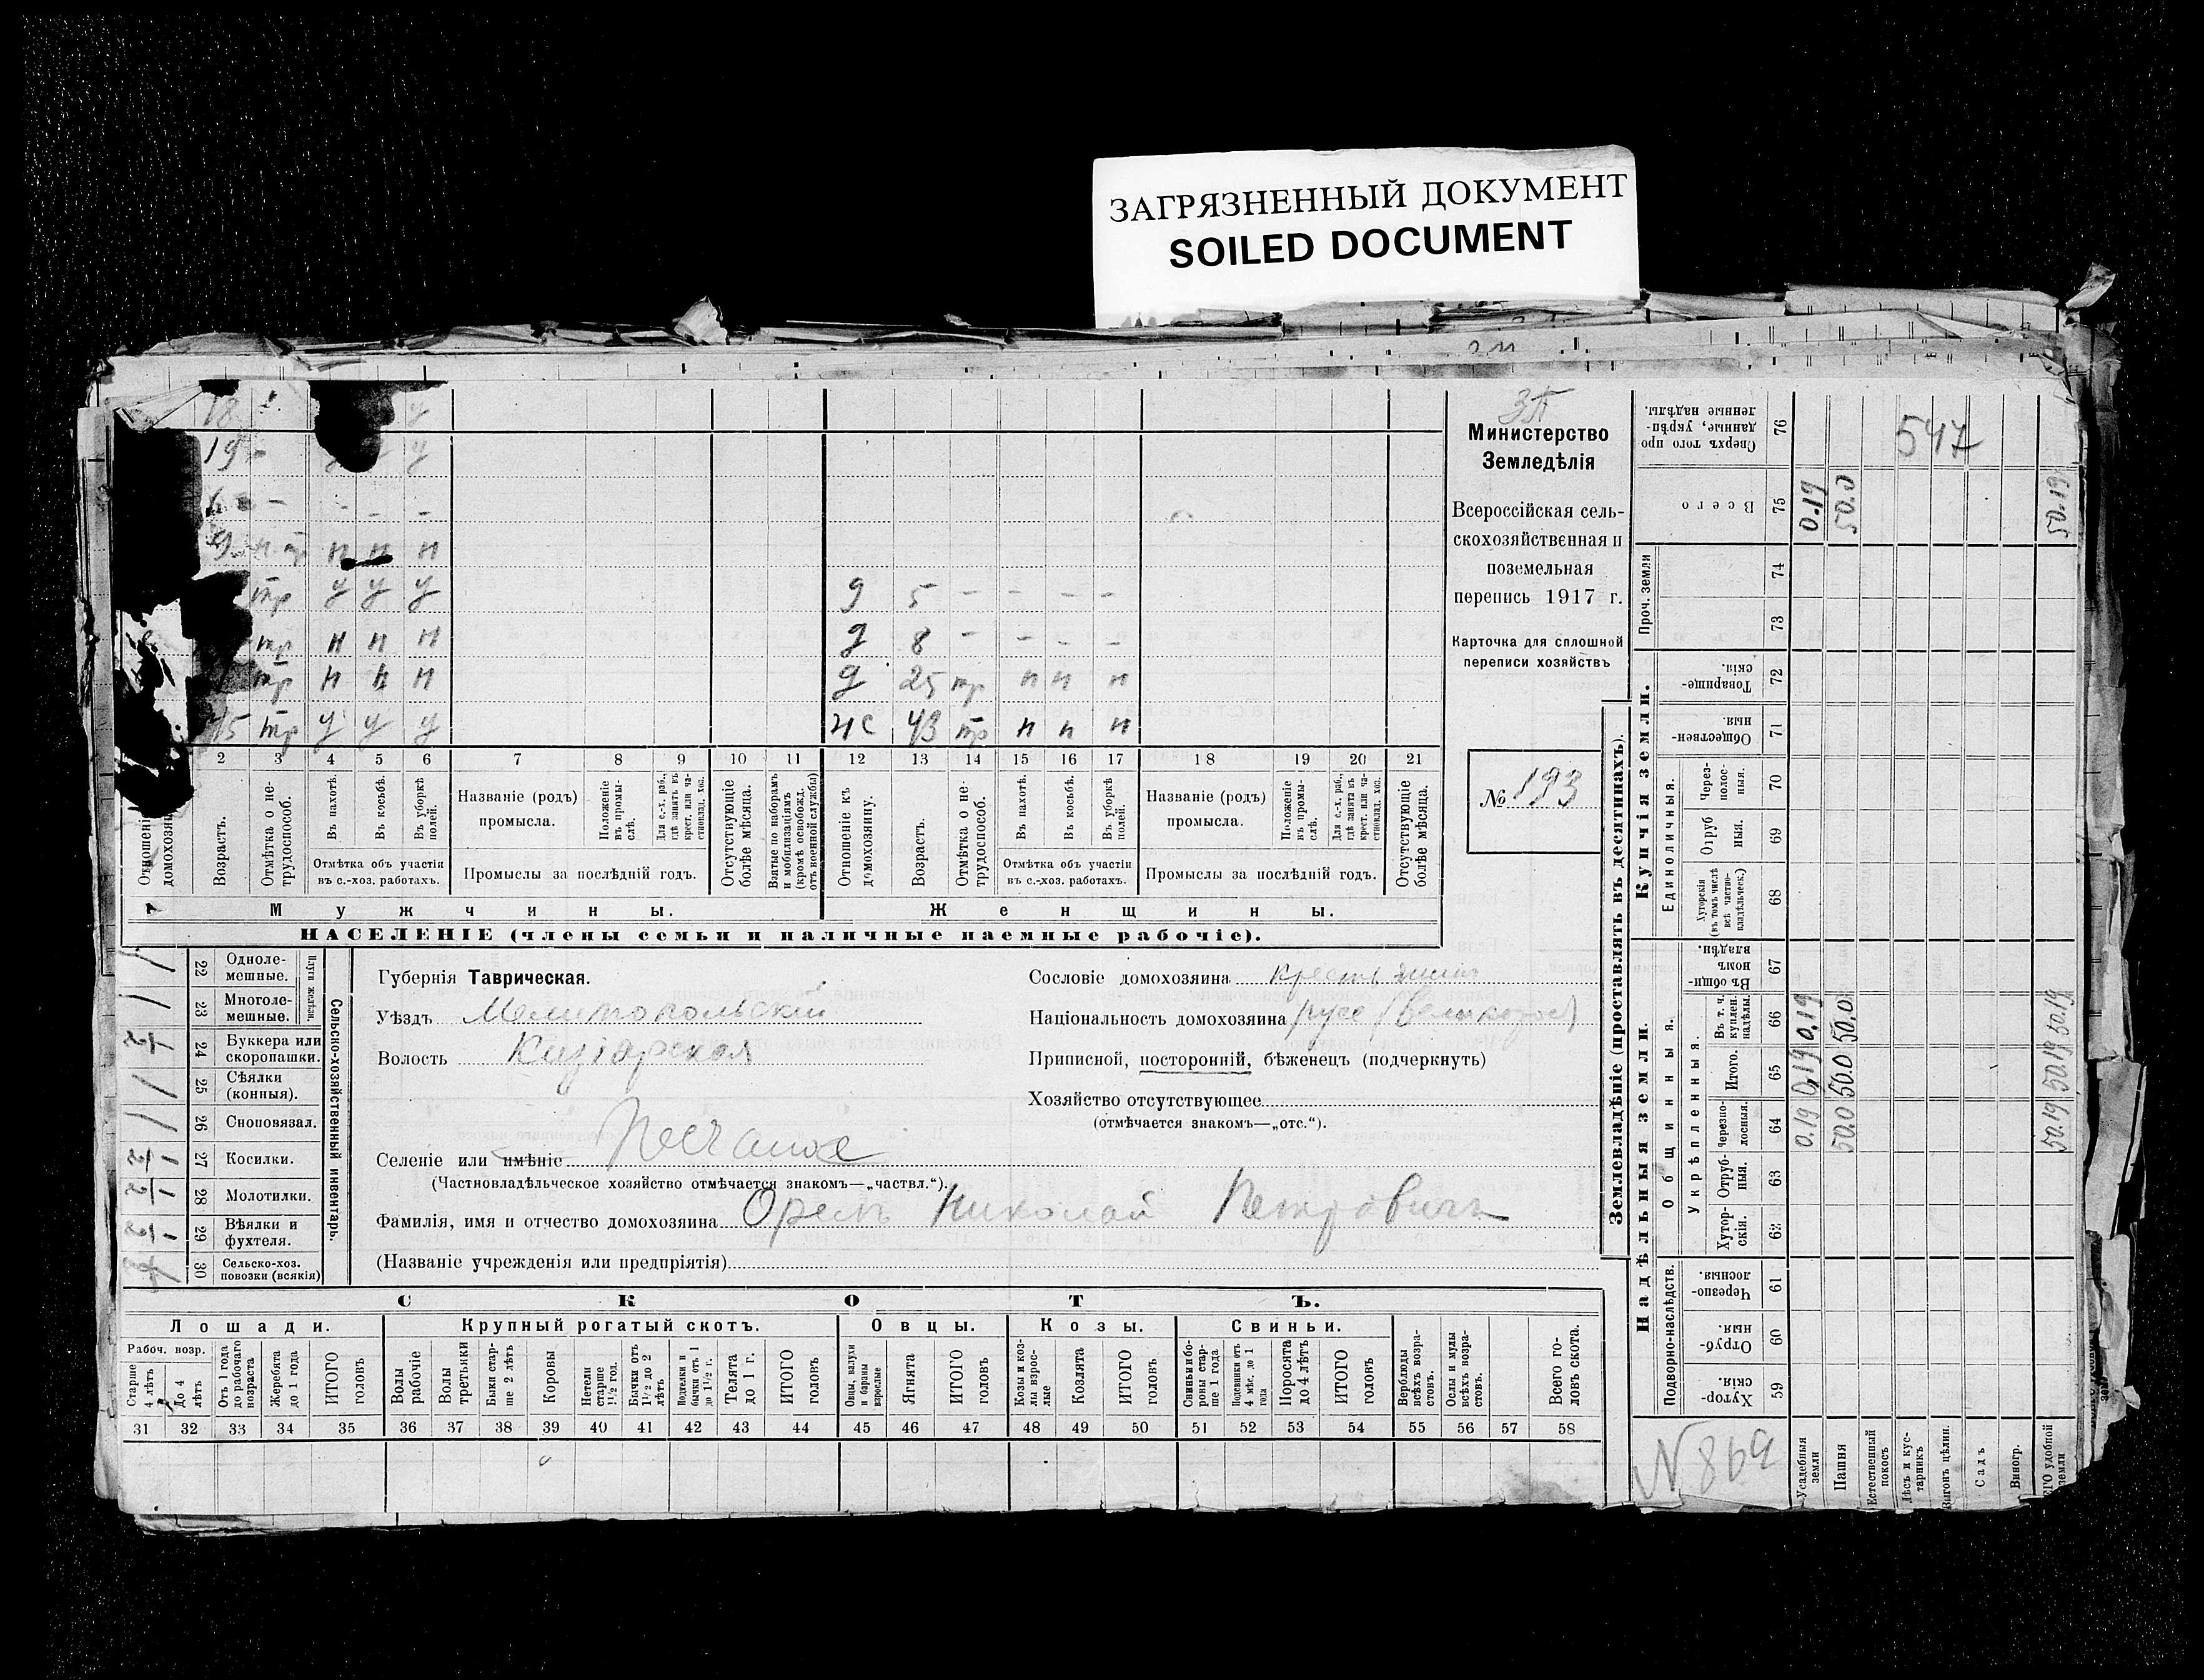 ЗАГРЯЗНЕННЫЙ ДОКУМЕНТ
SOILED DOCUMENT
18 у
19 у у у
6 - - - -
9 н тр н н н
тр у у у д 5 - - - -
тр н н н д 8 - - - -
тр н н н д 25 тр н н н
45 тр у у у жс 43 тр н н н
2 3 4 5 6 7 8 9 10 11 12 13 14 15 16 17 18 19 20 21
Отношеніе домохозяину.
Возрастъ.
Отмѣтка о нетрудоспособ.
Въ пахотѣ.
Въ косьбѣ.
Въ уборкѣ полей.
Отмѣтка объ участіи въ с.-хоз. работахъ.
Названіе (родъ) промысла.
Положеніе въ промыслѣ.
Для с.-х. раб., гдѣ занятъ въ крест. или частновлад. хоз.
Промыслы за послѣдній годъ.
Отсутствующіе болѣе мѣсяца.
Взятые по наборамъ и мобилизаціямъ (кромѣ освобожд. отъ военной службы)
Отношеніе къ домохозяину.
Возрастъ.
Отмѣтка о нетрудоспособ.
Въ пахотѣ.
Въ косьбѣ.
Въ уборкѣ полей.
Отмѣтка объ участіи въ с.-хоз. работахъ.
Названіе (родъ) промысла.
Положеніе въ промыслѣ.
Для с.-х. раб., гдѣ занята въ крест. или частновлад. хоз.
Промыслы за послѣдній годъ.
Отсутствующіе болѣе мѣсяца.
Мужчины.
Женщины.
НАСЕЛЕНІЕ (члены семьи и наличные наемные рабочіе).
Министерство
Земледѣлія
Всероссійская сель-
скохозяйственная и
поземельная
перепись 1917 г.
Карточка для сплошной
переписи хозяйствъ
№ 193
Сельско-хозяйственный инвентарь.
Плуги желѣзн.
22 Одноле-мешные.
1 23 Многоле-мешные.
1/2 24 Буккера или скоропашки.
1 25 Сѣялки (конныя).
1 26 Сноповязал.
1/2 27 Косилки.
1/2 28 Молотилки.
1/2 29 Вѣялки и фухтеля.
30 Сельско-хоз. повозки (всякія)
Губернія Таврическая.
Уѣздъ Мелитопольскій
Волость Кизіарская
Селеніе или имѣніе Песчаное
(Частновладѣльческое хозяйство отмѣчается знакомъ—„частвл.“).
Фамилія, имя и отчество домохозяина Орелъ Николай Петровичъ
(Названіе учрежденія или предпріятія)
Сословіе домохозяина крестьянинъ
Національность домохозяина русс (великоросъ)
Приписной, посторонній, бѣженец (подчеркнуть)
Хозяйство отсутствующее
(отмѣчается знакомъ—„отс.“).
СКОТЪ.
Лошади.
Крупный рогатый скотъ.
Овцы.
Козы.
Свиньи.
Рабоч. возр.
Старше 4 лѣтъ
До 4 лѣтъ
Отъ 1 года до рабочаго возраста
Жеребята до 1 года
ИТОГО
Волы рабочіе
Волы третьяки
Быки старше 2 лѣтъ
Коровы
Нетели старше 1½ год.
Бычки отъ 1½ до 2 лѣтъ
Подтелки и бычки отъ 1 до 1½ г.
Телята до 1 г.
ИТОГО головъ
Овцы, валухи и бараны взрослые
Ягнята
ИТОГО головъ
Козы и козлы взрослые
Козлята
ИТОГО головъ
Свиньи и боровы старше 1 года
Подсвинки отъ 4 мѣс. до 1 года
Поросята до 4 лѣтъ
ИТОГО головъ
Верблюды всѣхъ возрастовъ.
Ослы и мулы всѣхъ возрастовъ.
Всего головъ скота.
31 32 33 34 35 36 37 38 39 40 41 42 43 44 45 46 47 48 49 50 51 52 53 54 55 56 57 58
Землевладѣніе (проставлять въ десятинахъ).
Купчія земли.
Надѣльныя земли.
547
Сверхъ того проданные, укрѣпленные надѣлы. 76
Всего 75 0.19 50.0 50.19
Проч. земли
74
73
Товарищескія. 72
Общественныя. 71
Единоличныя.
Черезполосныя. 70
Отрубныя. 69
Хуторскія (въ томъ числѣ всѣ частновладѣльческ.) 68
Общинныя.
Въ общинномъ владѣн. 67
Укрѣпленныя.
Въ т. ч. куплен. надѣлы. 66 0.19 50.0 50.19
Итого. 65 0.19 50.0 50.19
Черезполосныя. 64 0.19 50.0 50.19
Отрубныя. 63
Хуторскія. 62
Подворно-наслѣдств.
Черезполосныя. 61
Отрубныя. 60
Хуторскія. 59
N 869
Усадебныя земли
Пашня
Естественный покосъ
Лѣсъ и кустарникъ
Выгонъ цѣлин.
Садъ
Виногр.
удобной земли